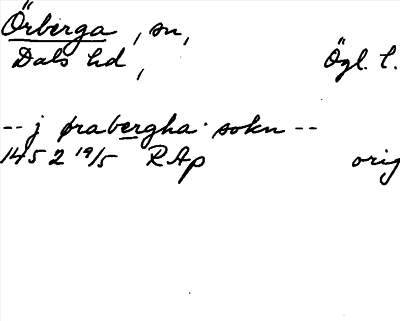 Örberga, sn,
Dals hd, Ögl. l.
-- j ørabergha sokn --
1452 19/5 RAp orig